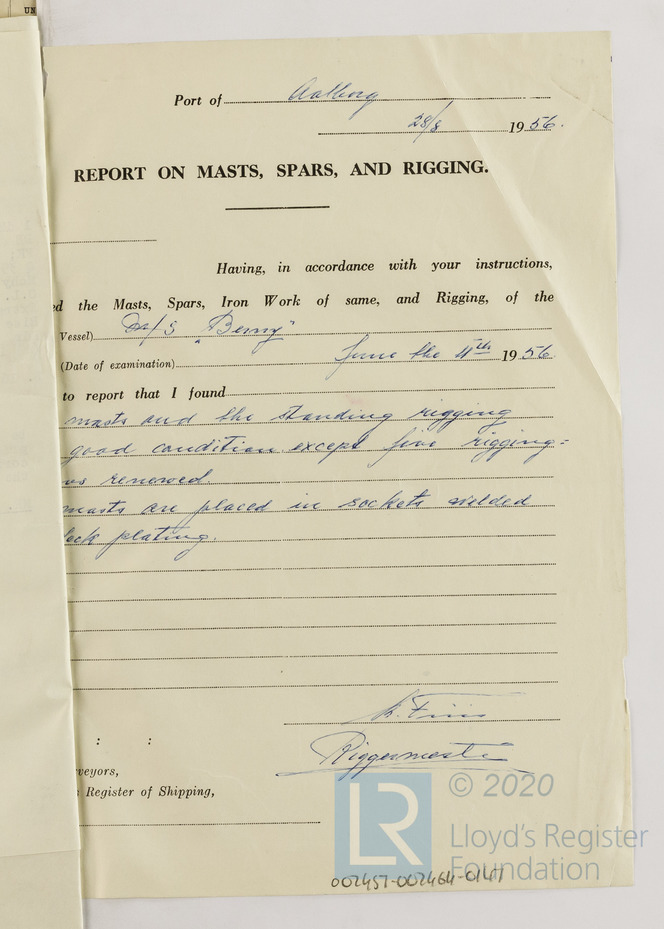 UN
Port of Aalborg
28/8 1956.
REPORT ON MASTS, SPARS, AND RIGGING.
Having, in accordance with your instructions,
ed the Masts, Spars, Iron Work of same, and Rigging, of the
Vessel) "Benny"
(Date of examination) June the 4th 1956.
to report that I found
masts and the standing rigging
good condition except five rigging=
renewed.
masts are placed in sockets welded
deck plating.
K. Friis
Riggermester
: :
rveyors,
s Register of Shipping,
LR © 2020
Lloyd's Register
Foundation
002457-002464-0147